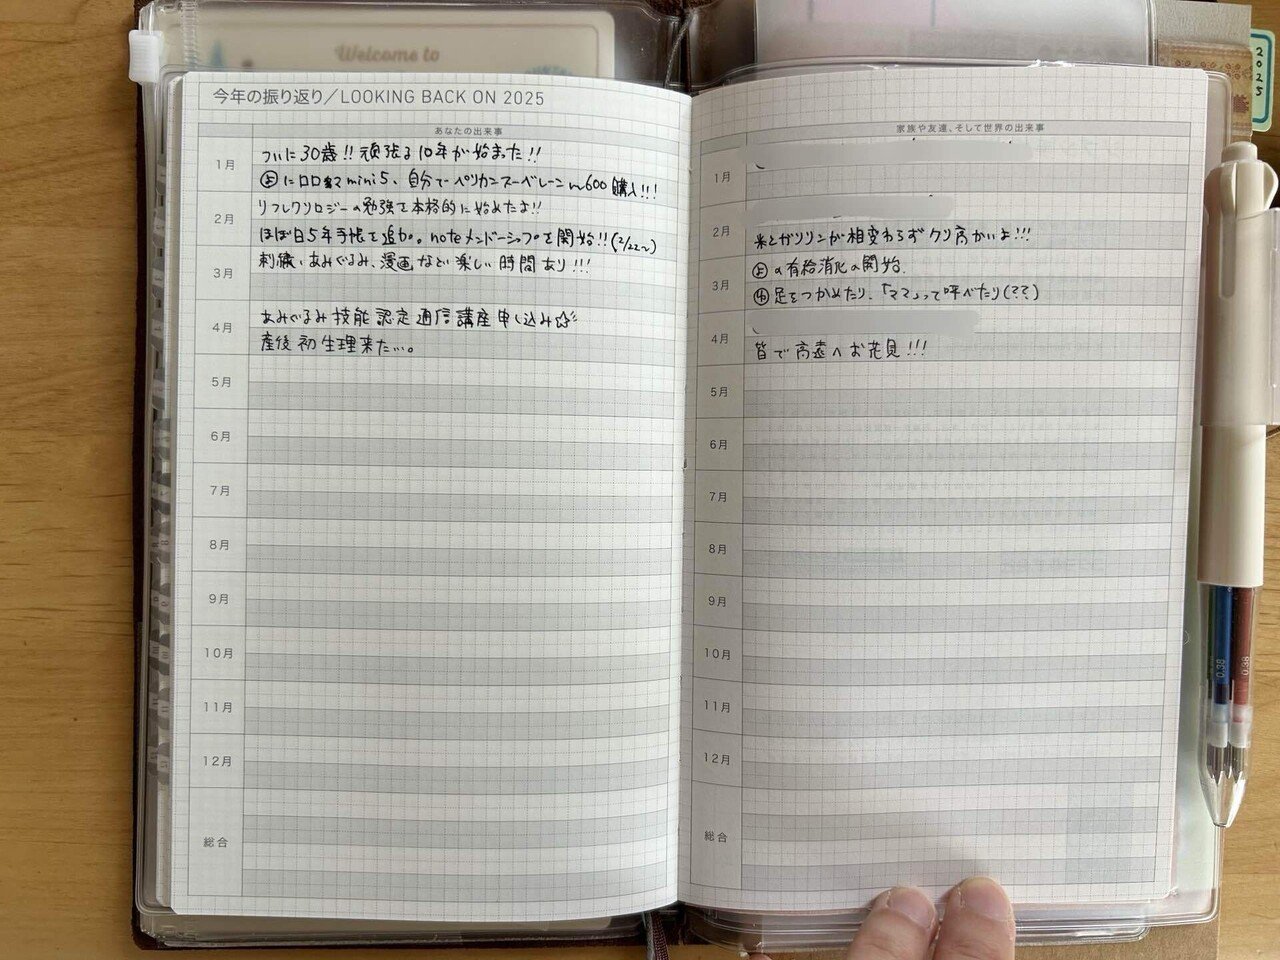 Welcome to
2025
今年の振り返り／LOOKING BACK ON 2025
あなたの出来事
1月
ついに30歳!! 頑張る10年が始まった!!
㋵にロロmini5、自分でペリカンスーベレーンm600購入!!!
2月
リフレクソロジーの勉強を本格的に始めたよ!!
ほぼ日5年手帳を追加。noteメンバーシップを開始!!(2/22〜)
3月
刺繍、あみぐるみ、漫画など楽しい時間あり!!!
4月
あみぐるみ技能認定通信講座申し込み☆彡
産後初生理来た…。
5月
6月
7月
8月
9月
10月
11月
12月
総合
家族や友達、そして世界の出来事
1月
2月
米とガソリンが相変わらずクソ高かいよ!!!
3月
㋵の有給消化の開始.
足をつかめたり、「ママ」って呼べたり(??)
4月
皆で高遠へお花見!!!
5月
6月
7月
8月
9月
10月
11月
12月
総合
0.38
0.38